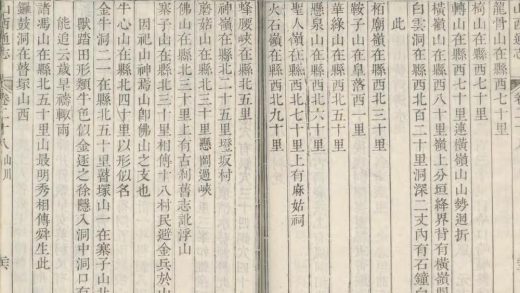 山西通志
龍骨山在縣西七十里
椅山在縣西七十里
轉山在縣西七十里連橫嶺山山勢迴折
橫嶺山在縣西八十里嶺上分垣絳界背有橫嶺關
白雲洞在縣西北百二十里洞深二丈內有石鐘白
此
栢廟嶺在縣西北三十里
鞍子山在皐落西一里
華綠山在縣西北五十里
懸泉山在縣西北六十里
聖人嶺在縣西北七十里上有麻姑祠
火石嶺在縣西北九十里
蜂腰峽在縣北五里
神嶺在縣北二十五里墱坂村
蘑菇山在縣北三十里懸關過峽
佛山在縣北三十里上有古刹舊志訛浮山
寨子山在縣北三十里相傳十八村民避金兵於山
因祀山神蔫山卽佛山之支也
牛心山在縣北四十里以形似名
金牛洞二一在縣北五十里瞽塚山一在寨子山北
獸踏田形類牛色似金逐之徐懸入洞中洞口有
能追云歲旱禱輒雨
諸馮山在縣北五十里山最明秀相傳舜生此
鑼鼓洞在瞽塚山西
山西通志 卷二十八 山川